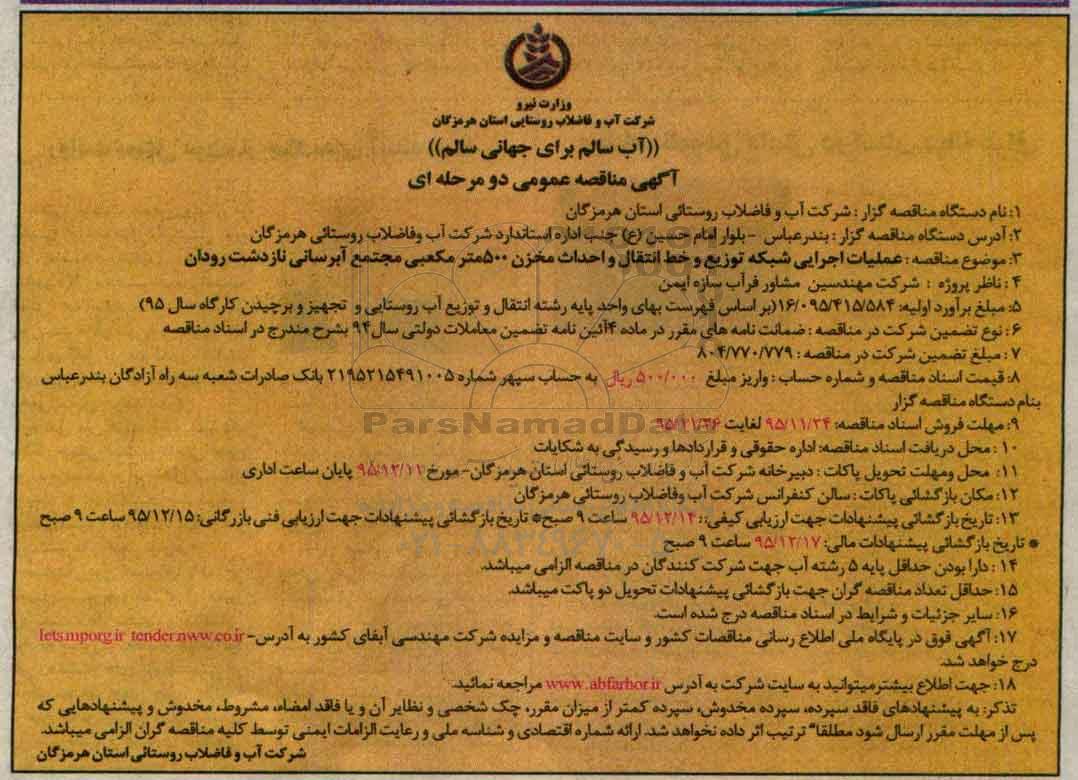 وزارت نیرو
شرکت آب و فاضلاب روستایی استان هرمزگان
((آب سالم برای جهانی سالم))
آگهی مناقصه عمومی دو مرحله ای
۱: نام دستگاه مناقصه گزار : شرکت آب و فاضلاب روستائی استان هرمزگان
۲: آدرس دستگاه مناقصه گزار : بندرعباس - بلوار امام حسین (ع) جنب اداره استاندارد شرکت آب وفاضلاب روستائی هرمزگان
۳: موضوع مناقصه : عملیات اجرایی شبکه توزیع و خط انتقال و احداث مخزن ۵۰۰متر مکعبی مجتمع آبرسانی نازدشت رودان
۴ : ناظر پروژه : شرکت مهندسین مشاور فرآب سازه ایمن
۵: مبلغ برآورد اولیه: ۱۶/۰۹۵/۴۱۵/۵۸۴(بر اساس فهرست بهای واحد پایه رشته انتقال و توزیع آب روستایی و تجهیز و برچیدن کارگاه سال ۹۵)
۶: نوع تضمین شرکت در مناقصه : ضمانت نامه های مقرر در ماده ۴آئین نامه تضمین معاملات دولتی سال۹۴ بشرح مندرج در اسناد مناقصه
۷ : مبلغ تضمین شرکت در مناقصه : ۸۰۴/۷۷۰/۷۷۹
۸: قیمت اسناد مناقصه و شماره حساب : واریز مبلغ ۵۰۰/۰۰۰ ریال به حساب سپهر شماره ۲۱۹۵۲۱۵۴۹۱۰۰۵ بانک صادرات شعبه سه راه آزادگان بندرعباس
بنام دستگاه مناقصه گزار
۹: مهلت فروش اسناد مناقصه: ۹۵/۱۱/۲۴ لغایت ۹۵/۱۱/۲۶
۱۰ : محل دریافت اسناد مناقصه: اداره حقوقی و قراردادها و رسیدگی به شکایات
۱۱: محل ومهلت تحویل پاکات : دبیرخانه شرکت آب و فاضلاب روستائی استان هرمزگان- مورخ ۹۵/۱۲/۱۱ پایان ساعت اداری
۱۲: مکان بازگشائی پاکات : سالن کنفرانس شرکت آب وفاضلاب روستائی هرمزگان
۱۳: تاریخ بازگشائی پیشنهادات جهت ارزیابی کیفی:: ۹۵/۱۲/۱۴ ساعت ۹ صبح* تاریخ بازگشائی پیشنهادات جهت ارزیابی فنی بازرگانی: ۹۵/۱۲/۱۵ ساعت ۹ صبح
* تاریخ بازگشائی پیشنهادات مالی: ۹۵/۱۲/۱۷ ساعت ۹ صبح
۱۴ : دارا بودن حداقل پایه ۵ رشته آب جهت شرکت کنندگان در مناقصه الزامی میباشد.
۱۵: حداقل تعداد مناقصه گران جهت بازگشائی پیشنهادات تحویل دو پاکت میباشد.
۱۶: سایر جزئیات و شرایط در اسناد مناقصه درج شده است.
۱۷: آگهی فوق در پایگاه ملی اطلاع رسانی مناقصات کشور و سایت مناقصه و مزایده شرکت مهندسی آبفای کشور به آدرس- Iets.mporg.ir tender.nww.co.ir
درج خواهد شد.
۱۸: جهت اطلاع بیشترمیتوانید به سایت شرکت به آدرس www.abfarhor.ir مراجعه نمائید.
تذکر: به پیشنهادهای فاقد سپرده، سپرده مخدوش، سپرده کمتر از میزان مقرر، چک شخصی و نظایر آن و یا فاقد امضاء، مشروط، مخدوش و پیشنهادهایی که
پس از مهلت مقرر ارسال شود مطلقا" ترتیب اثر داده نخواهد شد. ارائه شماره اقتصادی و شناسه ملی و رعایت الزامات ایمنی توسط کلیه مناقصه گران الزامی میباشد.
شرکت آب و فاضلاب روستائی استان هرمزگان
ParsNamadData